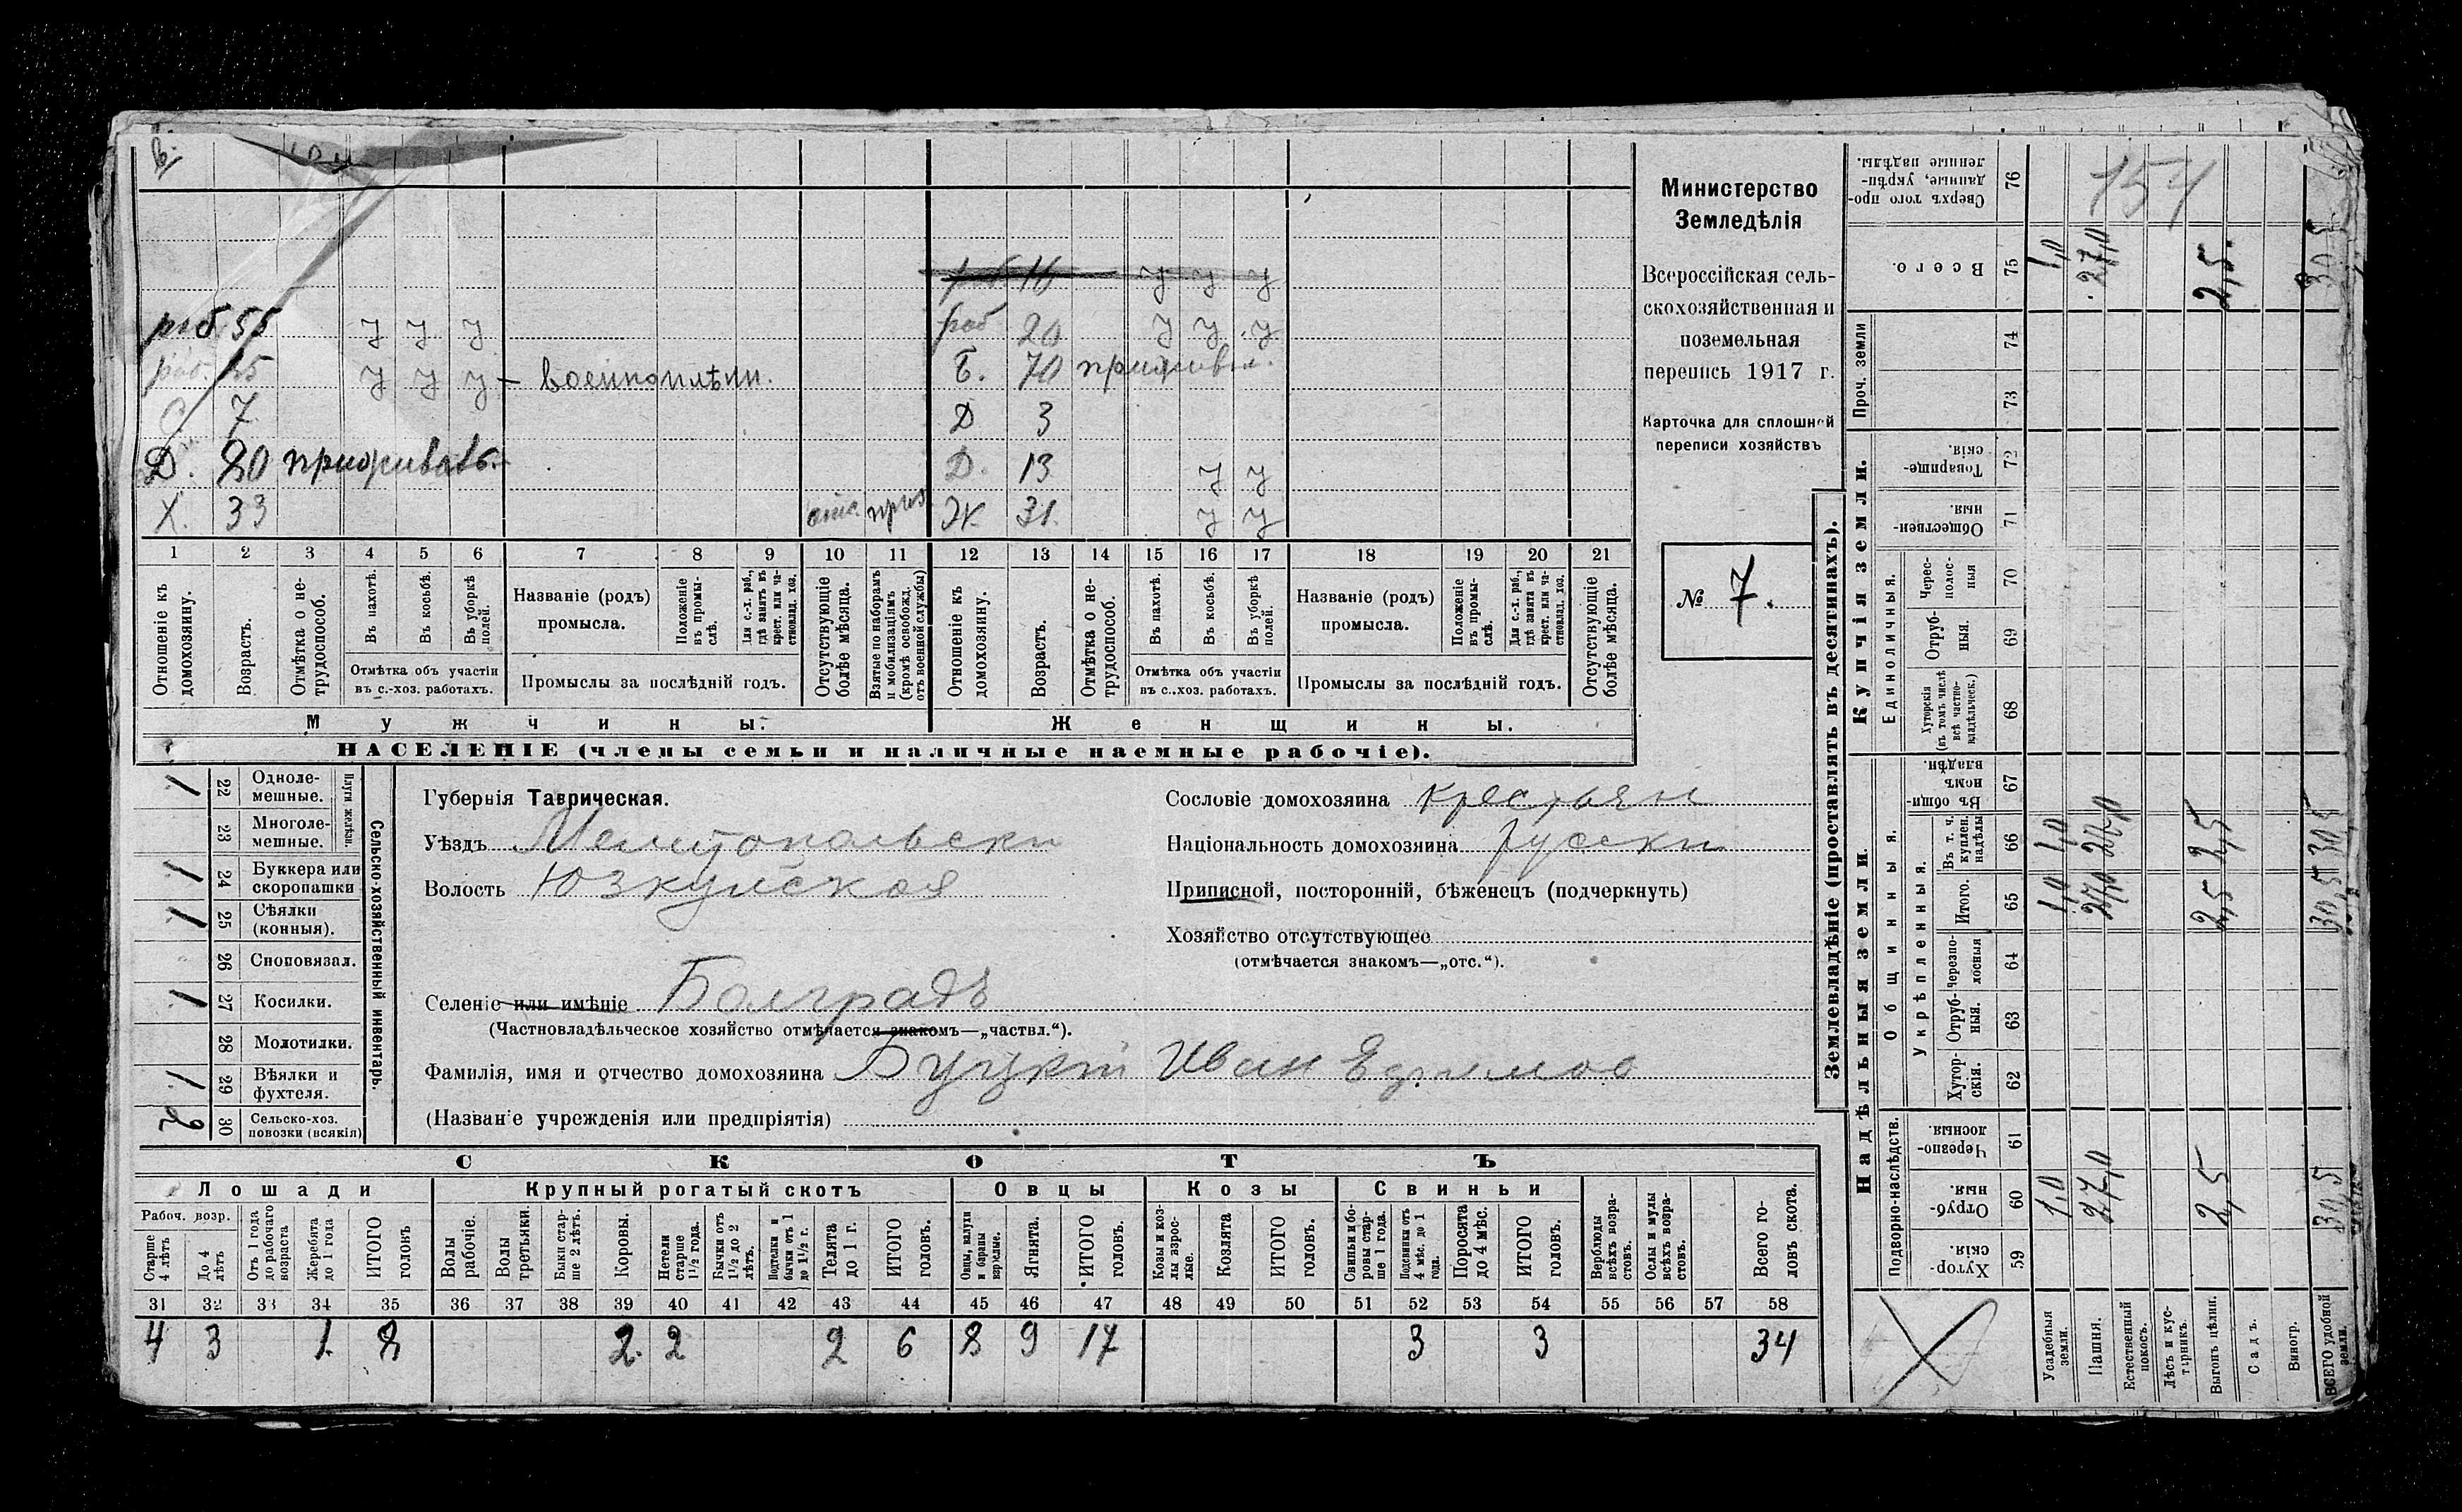 рбб 16 у у у
раб 55 у у у раб 20 у у у
раб. 15 у у у – военноплѣнн. Б. 70 приживал.
С 7 Д 3
Д. 80 приживать. Д. 13 у у
Х. 33 отс. приз. Ж. 31. у у
1 2 3 4 5 6 7 8 9 10 11 12 13 14 15 16 17 18 19 20 21
Отношеніе къ домохозяину.
Возрастъ.
Отмѣтка о не-трудоспособ.
Въ пахотѣ.
Въ косьбѣ.
Въ уборкѣ полей.
Отмѣтка объ участіи
въ с.-хоз. работахъ.
Названіе (родъ)
промысла.
Положеніе въ промы-слѣ.
Для с.-х. раб., гдѣ занятъ въ крест. или ча-стновлад. хоз.
Промыслы за послѣдній годъ.
Отсутствующіе болѣе мѣсяца.
Взятые по наборамъ и мобилизаціямъ (кромѣ освобожд. отъ военной службы)
Отношеніе къ домохозяину.
Возрастъ.
Отмѣтка о не-трудоспособ.
Въ пахотѣ.
Въ косьбѣ.
Въ уборкѣ полей.
Отмѣтка объ участіи
въ с..хоз. работахъ.
Названіе (родъ)
промысла.
Положеніе въ промы-слѣ.
Для с.-х. раб., гдѣ занята въ крест. или ча-стновлад. хоз.
Промыслы за послѣдній годъ.
Отсутствующіе болѣе мѣсяца.
Мужчины. Женщины.
НАСЕЛЕНІЕ (члены семьи и наличные наемные рабочіе).
Министерство
Земледѣлія
Всероссійская сель-
скохозяйственная и
поземельная
перепись 1917 г.
Карточка для сплошной
переписи хозяйствъ
№ 7.
1 22 Одноле-мешные.
23 Многоле-мешные.
Плуги желѣзн.
1 24 Буккера или скоропашки
1 25 Сѣялки (конныя).
26 Сноповязал.
1 27 Косилки.
28 Молотилки.
1 29 Вѣялки и фухтеля.
2 30 Сельско-хоз. повозки (всякія)
Сельско-хозяйственный инвентарь.
Губернія Таврическая.
Уѣздъ Мелитопольски
Волость Юзкуйская
Селеніе или имѣніе Болградъ
(Частновладѣльческое хозяйство отмѣчается знакомъ—„частвл.“).
Фамилія, имя и отчество домохозяина Буцкій Иван Ефимов
(Названіе учрежденія или предпріятія)
Сословіе домохозяина крестьян
Національность домохозяина русски
Приписной, посторонній, бѣженецъ (подчеркнуть)
Хозяйство отсутствующее
(отмѣчается знакомъ—„отс.“).
СКОТЪ
Лошади Крупный рогатый скотъ Овцы Козы Свиньи
Рабоч. возр.
Старше 4 лѣтъ
До 4 лѣтъ
Отъ 1 года до рабочаго возраста
Жеребята до 1 года
ИТОГО головъ
Волы рабочіе.
Волы третьяки.
Быки стар-ше 2 лѣтъ.
Коровы.
Нетели старше 1½ года.
Бычки отъ 1½ до 2 лѣтъ.
Подтелки и бычки отъ 1 до 1½ г.
Телята до 1 г.
ИТОГО головъ.
Овцы, валухи и бараны взрослые.
Ягнята.
ИТОГО головъ.
Козы и коз-лы взрос-лые.
Козлята
ИТОГО головъ.
Свиньи и бо-ровы стар-ше 1 года.
Подсвинки отъ 4 мѣс. до 1 года.
Поросята до 4 мѣс.
ИТОГО головъ.
Верблюды всѣхъ возра-стовъ.
Ослы и мулы всѣхъ возра-стовъ.
Всего го-ловъ скота.
31 32 33 34 35 36 37 38 39 40 41 42 43 44 45 46 47 48 49 50 51 52 53 54 55 56 57 58
4 3 1. 8 2. 2 2 6 8 9 17 3 3 34
Землевладѣніе (проставлять въ десятинахъ).
Надѣльныя земли. Купчія земли. Проч. земли
Подворно-наслѣдств.
Общинныя.
Укрѣпленныя.
Единоличныя.
Хутор-скія. 59
Отруб-ныя. 60
Черезпо-лосныя 61
Хутор-скія. 62
Отруб-ныя. 63
Черезпо-лосныя 64
Итого. 65
Въ т. ч. куплен. надѣлы 66
Въ общи-номъ владѣн. 67
Хуторскія (въ томъ числѣ всѣ частно-владѣльческ.) 68
Отруб-ныя. 69
Черес-полос-ныя 70
Обществен-ныя. 71
Товарище-скія. 72
73
74
Всего. 75
Сверхъ того про-данные, укрѣп-ленные надѣлы. 76
154
Усадебныя земли. 1,0 1,0 1,0 1,0
Пашня. 27,0 27,0 27,0 27,0
Естественный покосъ.
Лѣсъ и кус-тарникъ.
Выгонъ цѣлин. 2,5 2,5 2,5 2,5.
Садъ.
Виногр.
ВСЕГО удобной земли. 30,5 30,5 30,5 30,5